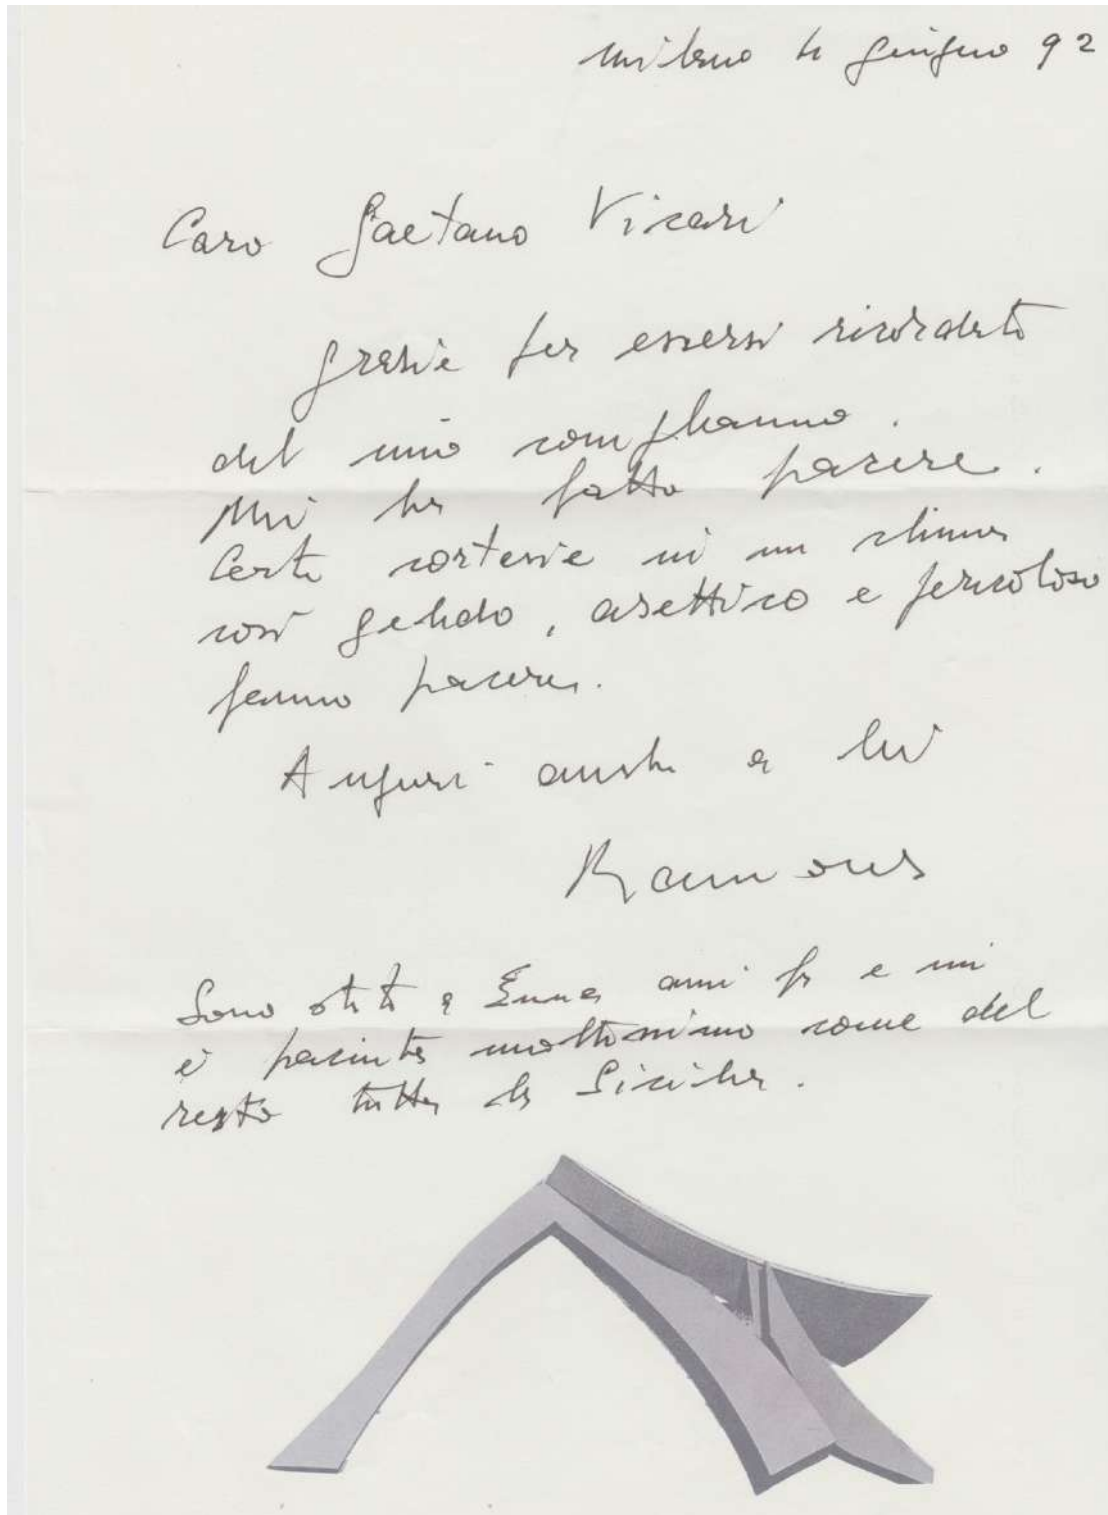 Milano 4 giugno 92
Caro Gaetano Vicari
grazie per essersi ricordato
del mio compleanno.
Mi ha fatto piacere.
Certe cortesie in un clima
così gelido, asettico e pericoloso
fanno piacere.
Auguri anche a lei
Ramous
Sono stato a Enna anni fa e mi
è piaciuta moltissimo come del
resto tutta la Sicilia.